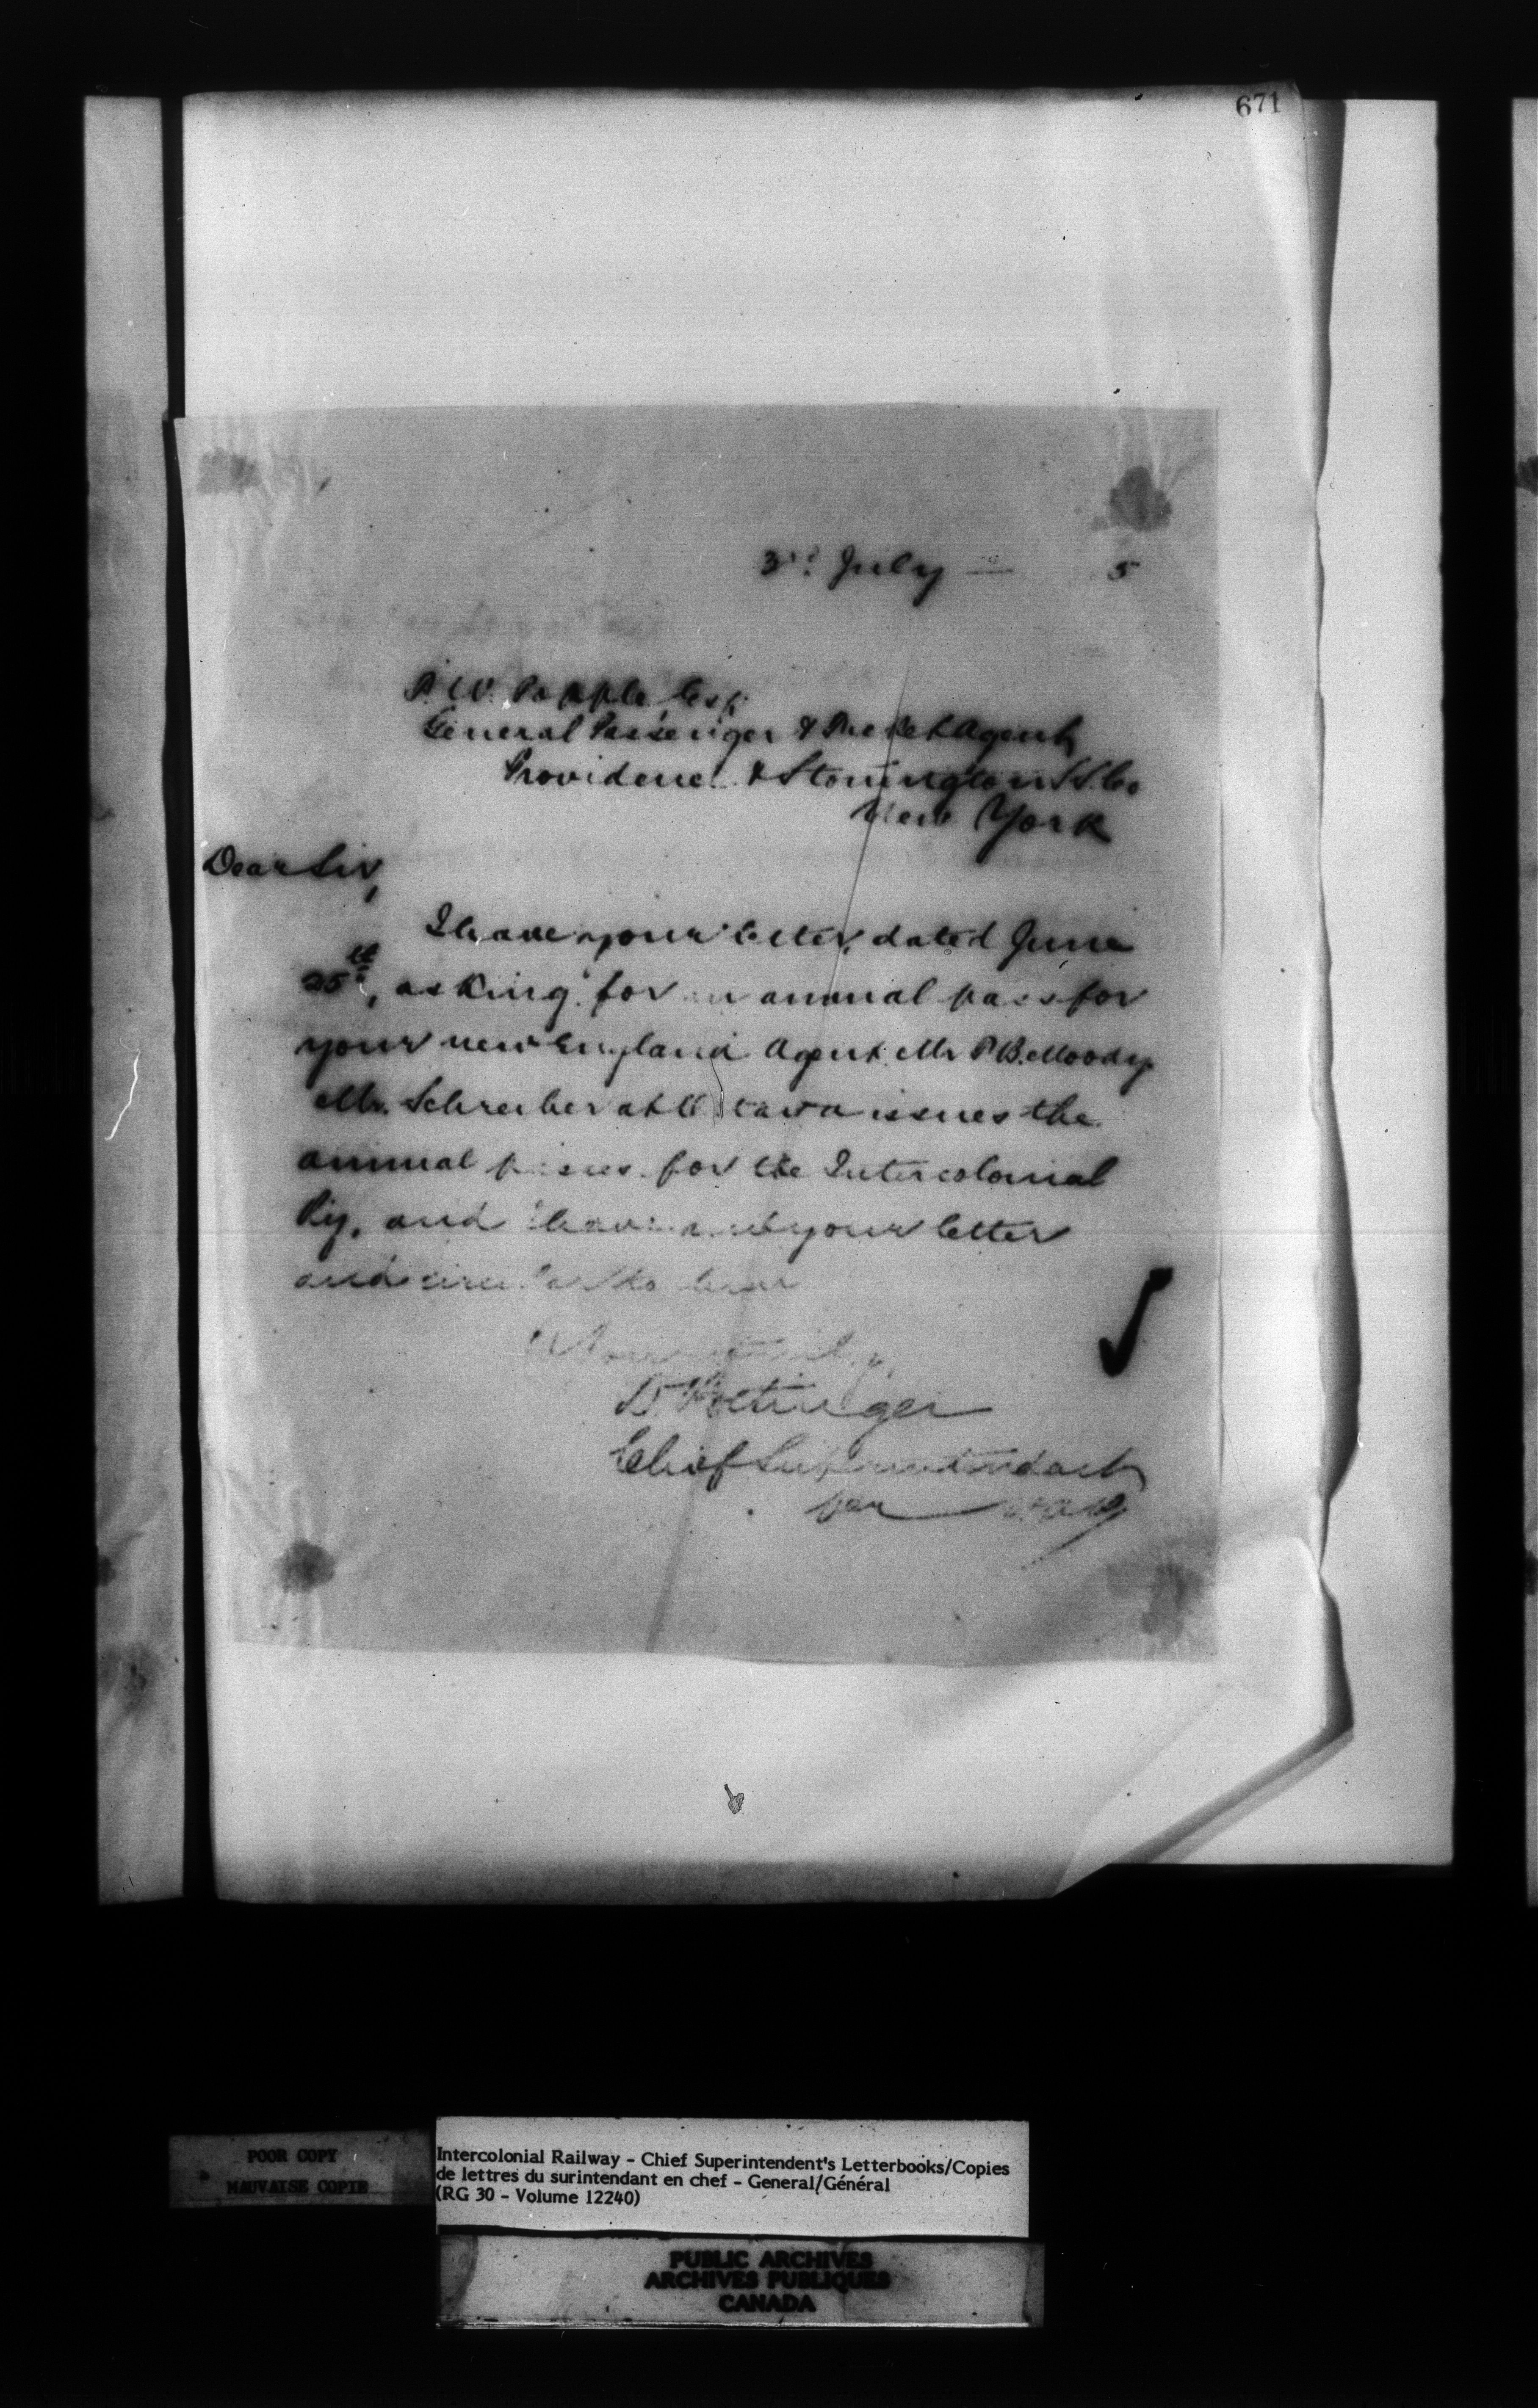 671
3rd July 5
F. W. Popple, Esq.
General Passenger & Ticket Agent,
Providence & Stonington S.S. Co
New York
Dear Sir,
I have your letter, dated June
25th, asking for an annual pass for
your new England Agent Mr P B. Moody
Mr. Schreiber at Ottawa issues the
annual passes for the Intercolonial
Ry, and I have your letter
and circular to him
Yours truly,
D Pottinger
Chief Superintendent
per
POOR COPY
MAUVAISE COPIE
Intercolonial Railway - Chief Superintendent's Letterbooks/Copies
de lettres du surintendant en chef - General/Général
(RG 30 - Volume 12240)
PUBLIC ARCHIVES
ARCHIVES PUBLIQUES
CANADA